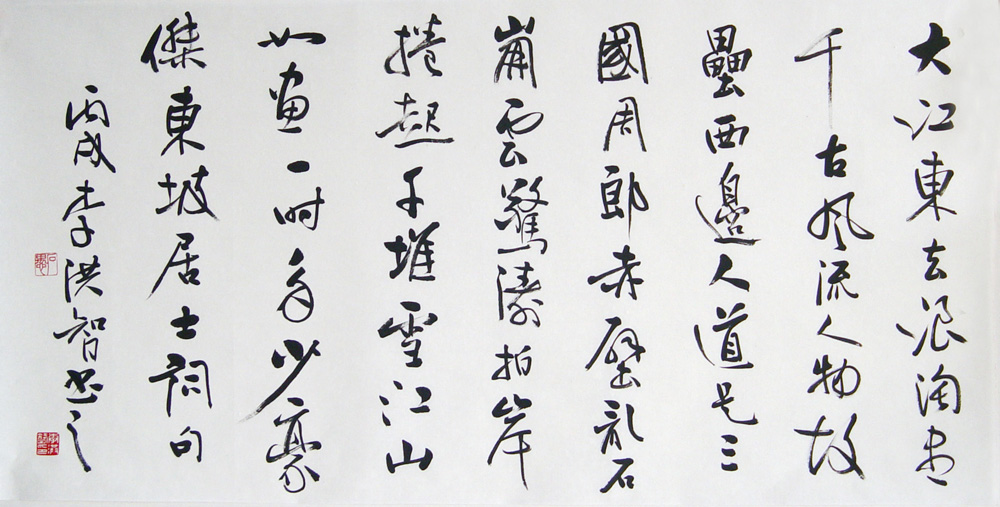 大江東去浪淘盡
千古風流人物故
壘西邊人道是三
國周郎赤壁亂石
崩雲驚濤拍岸
捲起千堆雪江山
如畫一時多少豪
傑東坡居士詞句
丙戌李洪智書之